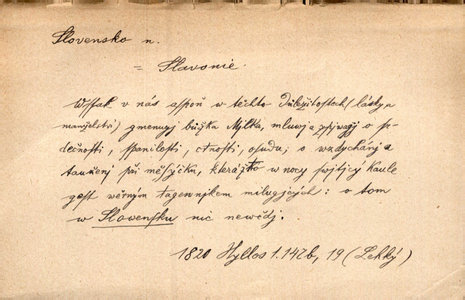 Slovensko n.
= Slavonie.
Wssak v nás aspoň w těchto Důležitostech (lásky a
manželství) gmenugj bůžka Mylka, mluwj a zpjwagj o
děčnosti, spanilosti, ctnosti, osudu; o wzdychánj a
taužení při měsjčku, kterážto w nocy swjtjcý kaule
gest wěrným tagemnjkem milugjcých: o tom
w Slowensku nic newědj.
1820 Hyllos 1.147b, 19 (Lehký)